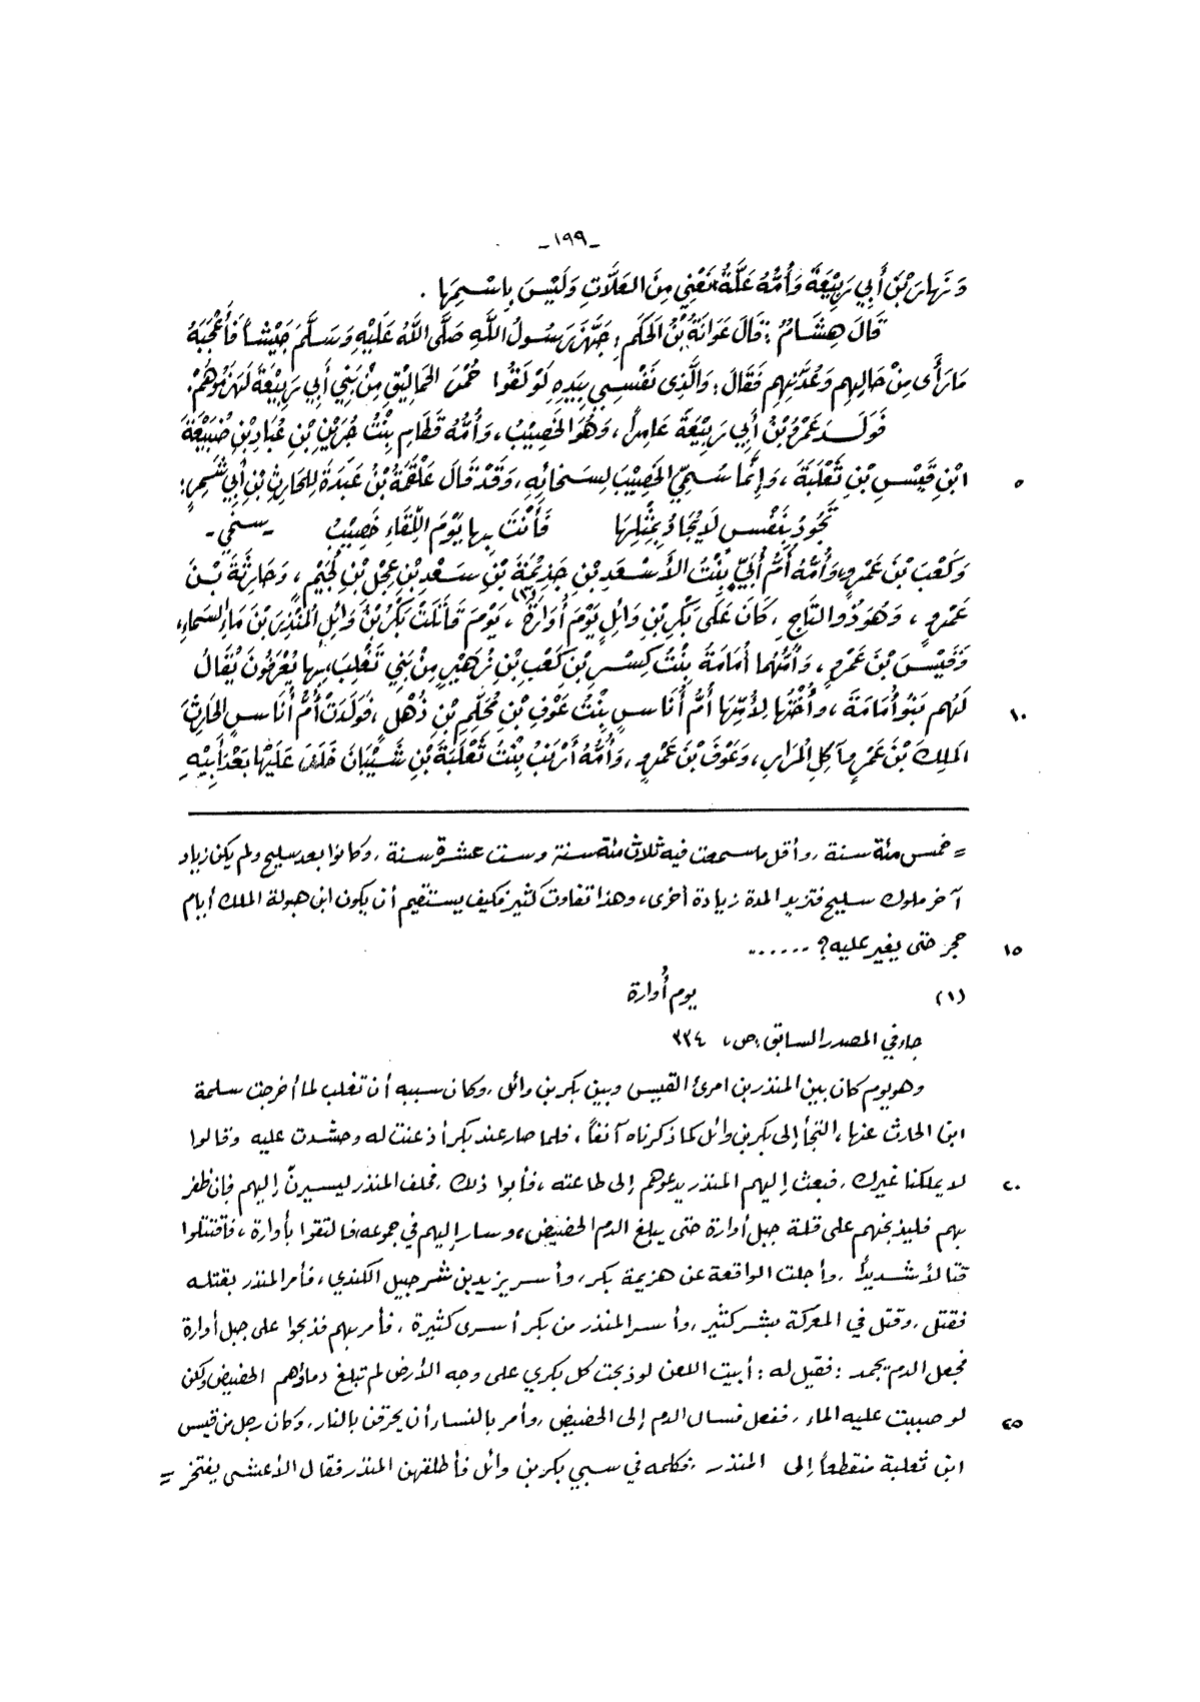 -١٩٩-
وَنَهَارَ بْنَ أَبِي رَبِيْعَةَ وَأُمُّهُ عَلَّةُ نَعْنِي مِنَ العَلَّاتِ وَلَيْسَ بِاسْمِهَا .
قَالَ هِشَامٌ : قَالَ عَوَانَةُ بْنُ الحَكَمِ : جَهَّزَ رَسُولُ اللَّهِ صَلَّى اللَّهُ عَلَيْهِ وَسَلَّمَ جَيْشاً فَأَعْجَبَهُ
مَا رَأَى مِنْ حَالِهِم وَعُدَّتِهِم فَقَالَ : وَالَّذِي نَفْسِي بِيَدِهِ لَوْ لَقُوا حُمْسَ الحَمَالِيْقِ مِنْ بَنِي أَبِي رَبِيْعَةَ لَهَزَمُوهُمْ .
فَوَلَدَ عَمْرُو بْنُ أَبِي رَبِيْعَةَ عَامِراً ، وَهُوَ الخَصِيْبُ ، وَأُمُّهُ قَطَامِ بِنْتُ جُرَيْنِ بْنِ عُبَادِ بْنِ ضُبَيْعَةَ
ابْنِ قَيْسِ بْنِ ثَعْلَبَةَ ، وَإِنَّمَا سُمِّيَ الخَصِيْبَ لِسَخَائِهِ ، وَقَدْ قَالَ عَلْقَمَةُ بْنُ عَبَدَةَ لِلحَارِثِ بْنِ أَبِي شَمِرٍ : ٥
تَجُودُ بِنَفْسٍ لَا يُجَادُ بِمِثْلِهَا فَأَنْتَ بِهَا يَوْمَ اللِّقَاءِ خَصِيْبُ - سخي -
وَكَعْبَ بْنَ عَمْرٍو وَأُمُّهُ أُمُّ أُبَيٍّ بِنْتُ الأَسْعَدِ بْنِ جَذِيْمَةَ بْنِ سَعْدِ بْنِ عِجْلِ بْنِ لُجَيْمٍ ، وَحَارِثَةَ بْنَ
عَمْرٍو ، وَهُوَ ذُو التَّاجِ ، كَانَ عَلَى بَكْرِ بْنِ وَائِلٍ يَوْمَ أُوَارَةَ (١) ، يَوْمَ قَاتَلَتْ بَكْرُ بْنُ وَائِلٍ المُنْذِرَ بْنَ مَاءِ السَّمَاءِ ،
وَقَيْسَ بْنَ عَمْرٍو ، وَأُمُّهُمَا أُمَامَةُ بِنْتُ كِسْرِ بْنِ كَعْبِ بْنِ زُهَيْرٍ مِنْ بَنِي تَغْلِبَ ، بِهَا يُعْرَفُونَ يُقَالُ
لَهُم بَنُو أُمَامَةَ ، وَأُخْتُهَا لِأُمِّهَا أُمُّ أُنَاسٍ بِنْتُ عَوْفِ بْنِ مُحَلِّمِ بْنِ ذُهْلٍ ، فَوَلَدَتْ أُمُّ أُنَاسٍ الحَارِثَ ١٠
المَلِكَ بْنَ عَمْرِو آكِلِ المُرَارِ ، وَعَوْفَ بْنَ عَمْرٍو ، وَأُمُّهُ أَرْنَبُ بِنْتُ ثَعْلَبَةَ بْنِ شَيْبَانَ خَلَفَ عَلَيْهَا بَعْدَ أَبِيْهِ
= خمس مئة سنة ، وأقل ما سمعت فيه ثلاث مئة سنة وست عشرة سنة ، وكانوا بعد سليح ولم يكن زياد
آخر ملوك سليح فتزيد المدة زيادة أخرى ، وهذا تفاوت كثير فكيف يستقيم أن يكون ابن هبولة الملك أيام
حجر حتى يغير عليه؟ ...... ١٥
(١) يوم أُوارة
جاء في المصدر السابق ، ص ، ٣٣٤
وهو يوم كان بين المنذر بن امرئ القيس وبين بكر بن وائل ، وكان سببه أن تغلب لما أخرجت سلمة
ابن الحارث عنها ، التجأ إلى بكر بن وائل كما ذكرناه آنفاً ، فلما صار عند بكر أذعنت له وحشدت عليه وقالوا
لا يملكنا غيرك ، فبعث إليهم المنذر يدعوهم إلى طاعته ، فأبوا ذلك ، فحلف المنذر ليسيرنّ إليهم فإن ظفر ٢٠
بهم فليذبحنهم على قلة جبل أوارة حتى يبلغ الدم الحضيض ، وسار إليهم في جموعه ، فالتقوا بأوارة ، فاقتتلوا
قتالاً شديداً ، وأجلت الواقعة عن هزيمة بكر ، وأسر يزيد بن شرحبيل الكندي ، فأمر المنذر بقتله
فقتل ، وقتل في المعركة بشر كثير ، وأسر المنذر من بكر أسرى كثيرة ، فأمر بهم فذبحوا على جبل أوارة
فجعل الدم يجمد : فقيل له : أبيت اللعن لو ذبحت كل بكري على وجه الأرض لم تبلغ دماؤهم الحضيض ولكن
لو صببت عليه الماء ، ففعل فسال الدم إلى الحضيض ، وأمر بالنساء أن يحرقن بالنار ، وكان رجل من قيس ٢٥
ابن ثعلبة منقطعاً إلى المنذر ، فكلمه في سبي بكر بن وائل فأطلقهن المنذر فقال الأعشى يفتخر =